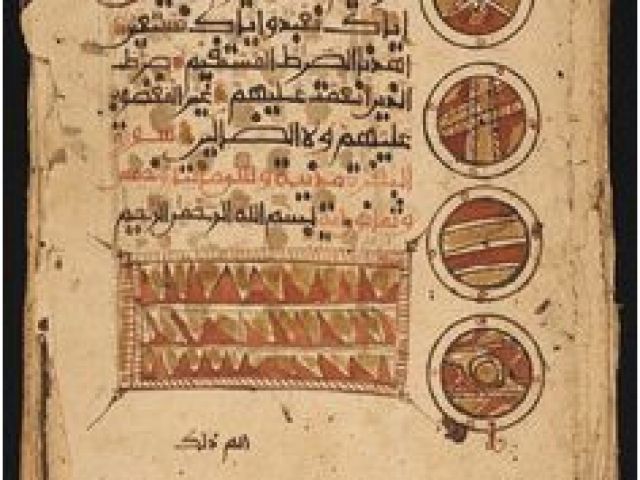 اياك نعبد واياك نستعين
اهدنا الصرط المستقيم صرط
الذين انعمت عليهم غير المغضو
عليهم ولا الضالين سورة
البقرة مدنية وهي مايتان وخمس
وثمانون اية بسم الله الرحمن الرحيم
الم ذلك